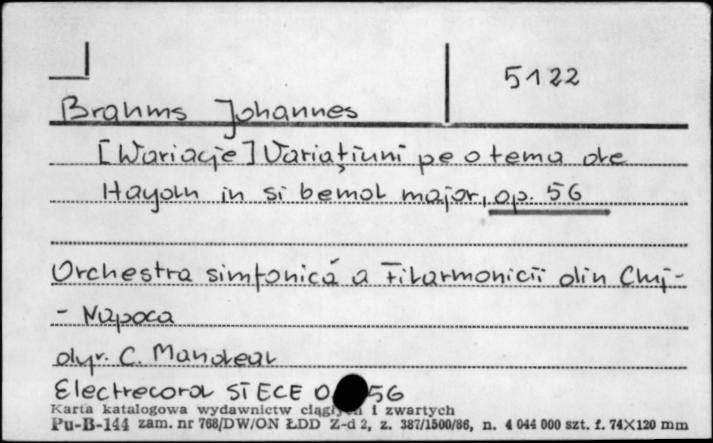 5122
Brahms Johannes
[Wariacje] Variațiuni pe o tema de
Haydn in si bemol major, op. 56
Orchestra simfonică a Filarmonicii din Cluj-
- Napoca
dyr. C. Mandeal
Electrecord ST ECE 56
Karta katalogowa wydawnictw ciągłych i zwartych
Pu-B-144 zam. nr 768/DW/ON ŁDD Z-d 2, z. 387/1500/86, n. 4 044 000 szt. f. 74X120 mm